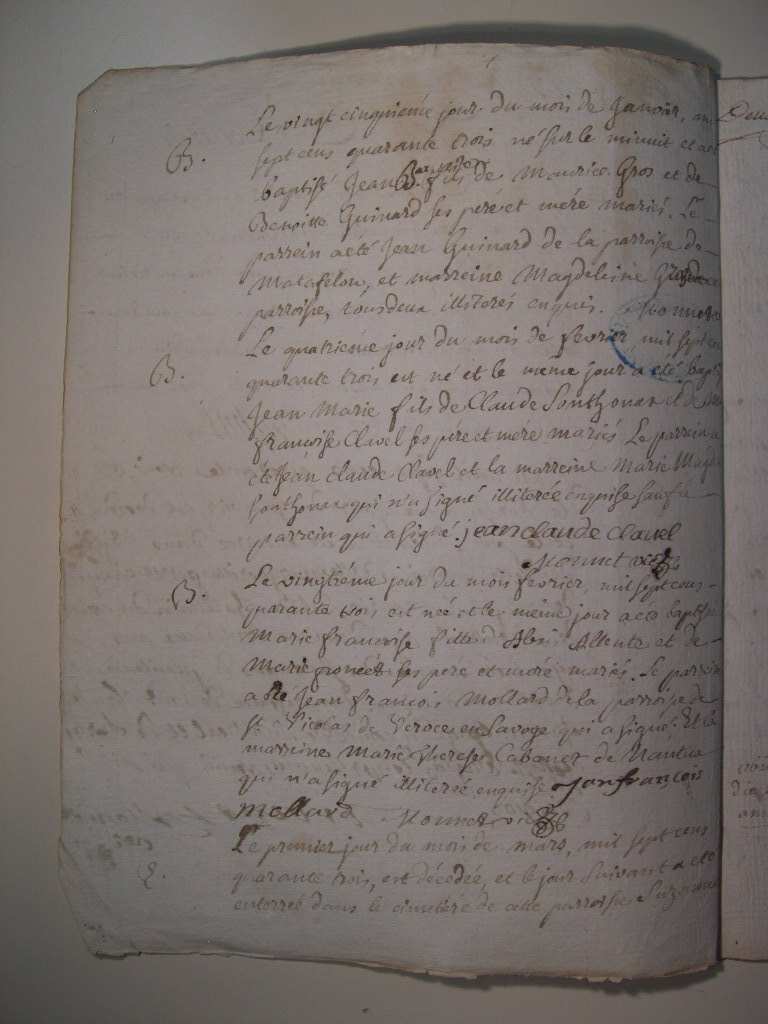 Le vingt cinquieme jour du mois de Janvier, an
B. sept cens quarante trois né sur le minuit et a été
baptisé Jean Baptiste fils de Maurice Gros et de
Benoitte Guinard ses peré et mére mariés. Le
parrein a été Jean Guinard de la parroise de
Matafelon, et marreine Magdeleine
parroise, tous deux illiterés enquis. Monnet
Le quatrieme jour du mois de fevrier mil sept
B. quarante trois est né et le même jour a été
Jean Marie fils de Claude Sonthonax et de
francoise Clavel ses pére et mére mariés Le parrein a
été Jean claude Clavel et la marreine Marie
Sonthonax qui n'a signé illiterée enquise sauf le
parrein qui a signé. jean claude Clavel
Monnet
Le vingtiéme jour du mois fevrier, mil sept cens
B. quarante trois est née et le même jour a été
Marie francoise fille d' et de
Marie ses pere et mére mariés. Le parrein
a été Jean francois Mollard de la parroise de
St. Nicolas de Veroce en Savoye qui a signé. Et la
marreine Marie Therese Cabanet de Nantua
qui n'a signé illiterée enquise. Janfrançois
Mollard Monnet
Le premier jour du mois de mars, mil sept cens
quarante trois, est décedée, et le jour suivant a eté
enterrée dans le cimetère de cette parroise